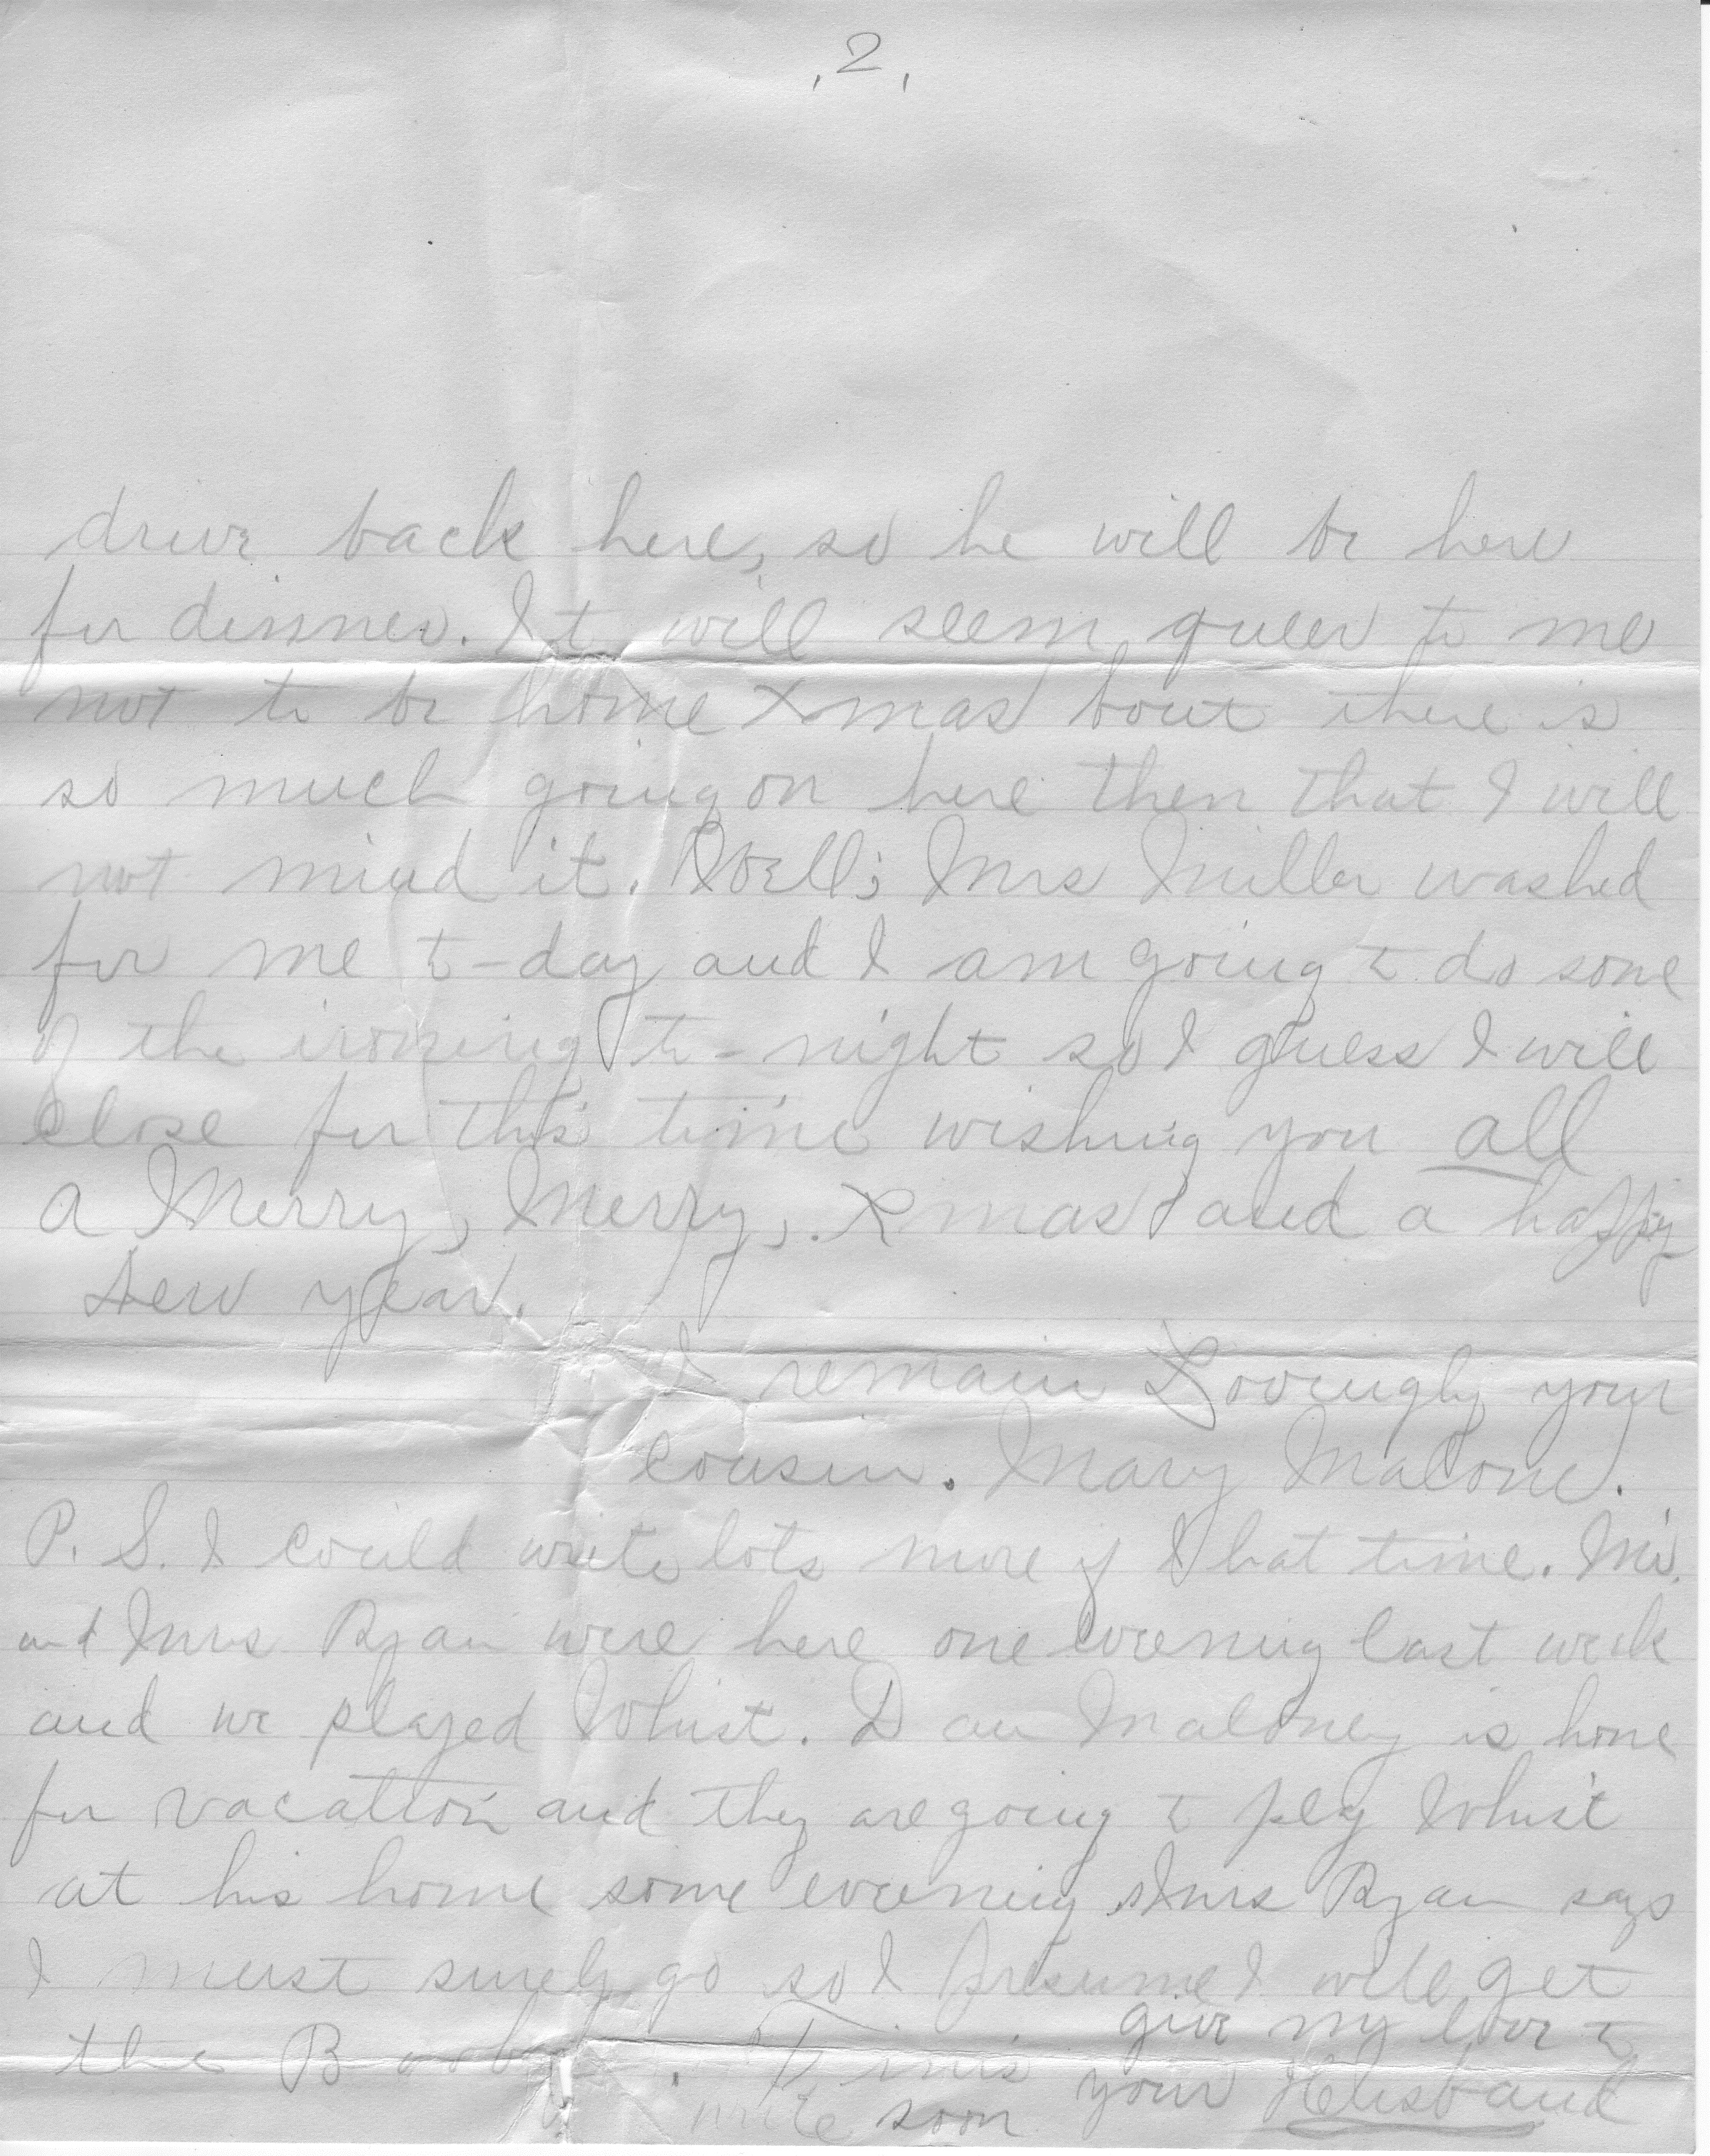 , 2 ,
drive back here, so he will be here
for dinner. It will seem queer to me
not to be home Xmas bout there is
so much going on here then that I will
not mind it. Well; Mrs Miller washed
for me to-day and I am going to do some
of the ironing to-night so I guess I will
close for this time wishing you all
a Merry, Merry, Xmas and a happy
New year.
I remain Lovingly your
cousin. Mary Malone.
P. S. I could write lots more if I hat time. Mr.
and Mrs Ryan were here one evening last week
and we played Whist. Dan Maloney is home
for vacation and they are going to play Whist
at his home some evening. Mrs Ryan says
I must surely go so I presume I will get
the Booby. Finis
write soon
give my love to
your Husband